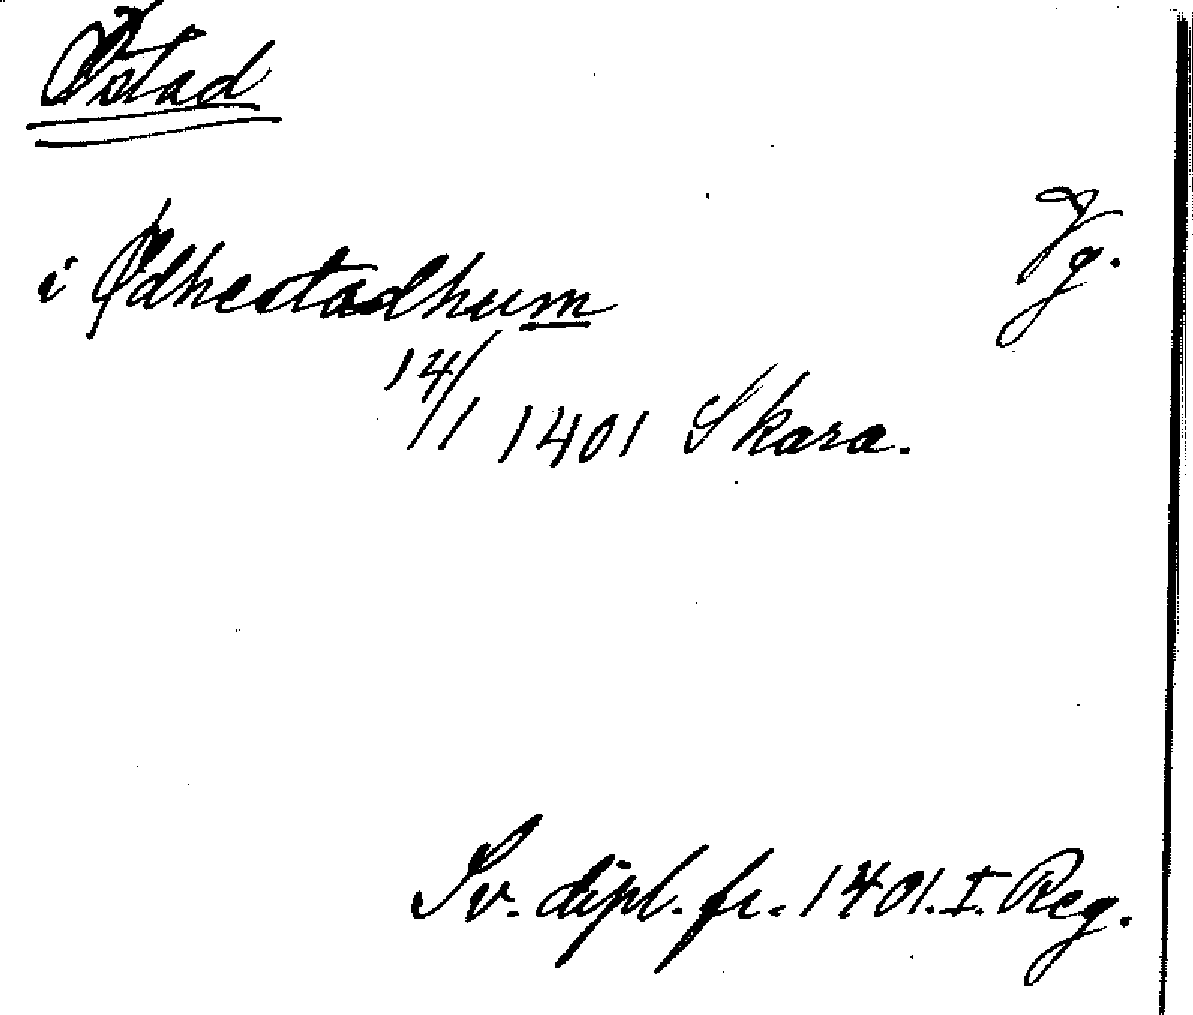 Östad
i Ødhestadhum Vg.
14/1 1401 Skara.
Sv. dipl. fr. 1401. I. Reg.